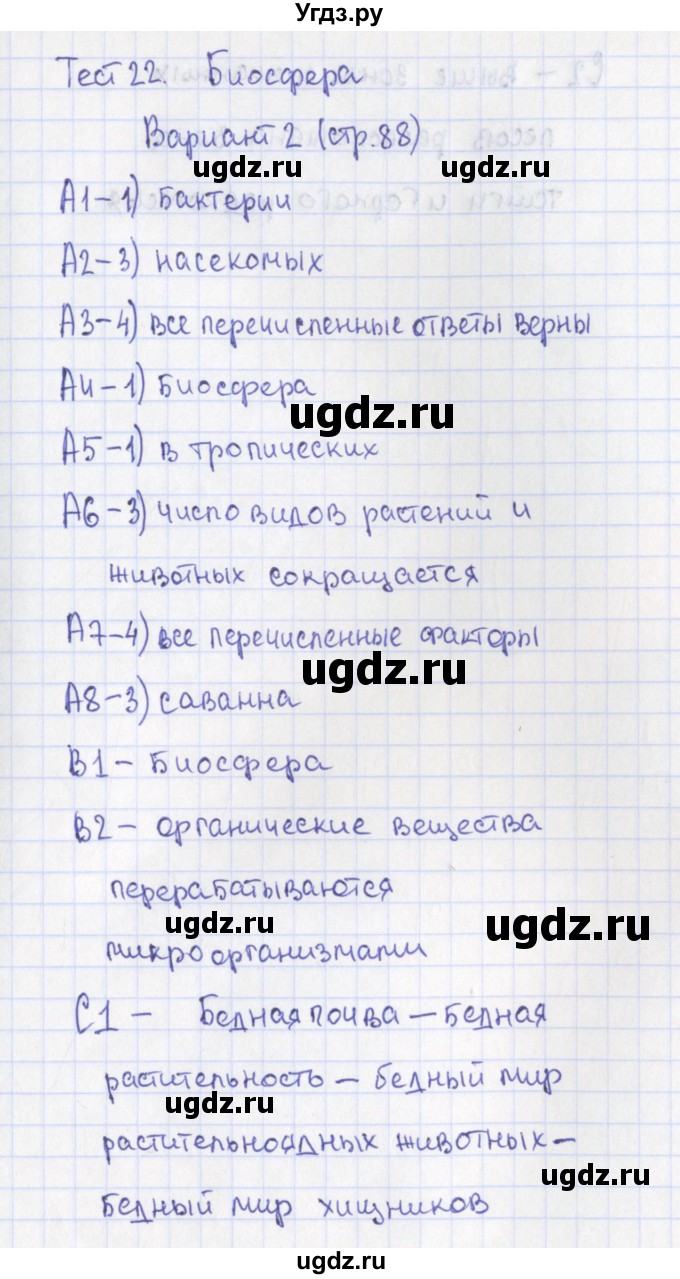 Угдз.ру
Тест 22. Биосфера
Вариант 2 (стр.88)
ugdz.ru ugdz.ru
А1-1) Бактерии
А2-3) насекомых
А3-4) все перечисленные ответы верны
А4-1) Биосфера
ugdz.ru
А5-1) в тропических
А6-3) число видов растений и
животных сокращается
А7-4) все перечисленные факторы
ugdz.ru
А8-3) саванна
В1- Биосфера
В2- органические вещества
перерабатываются
ugdz.ru ugdz.ru
микроорганизмами
С1 - Бедная почва - бедная
растительность - бедный мир
ugdz.ru
растительноядных животных-
ugdz.ru
бедный мир хищников
ugdz.ru